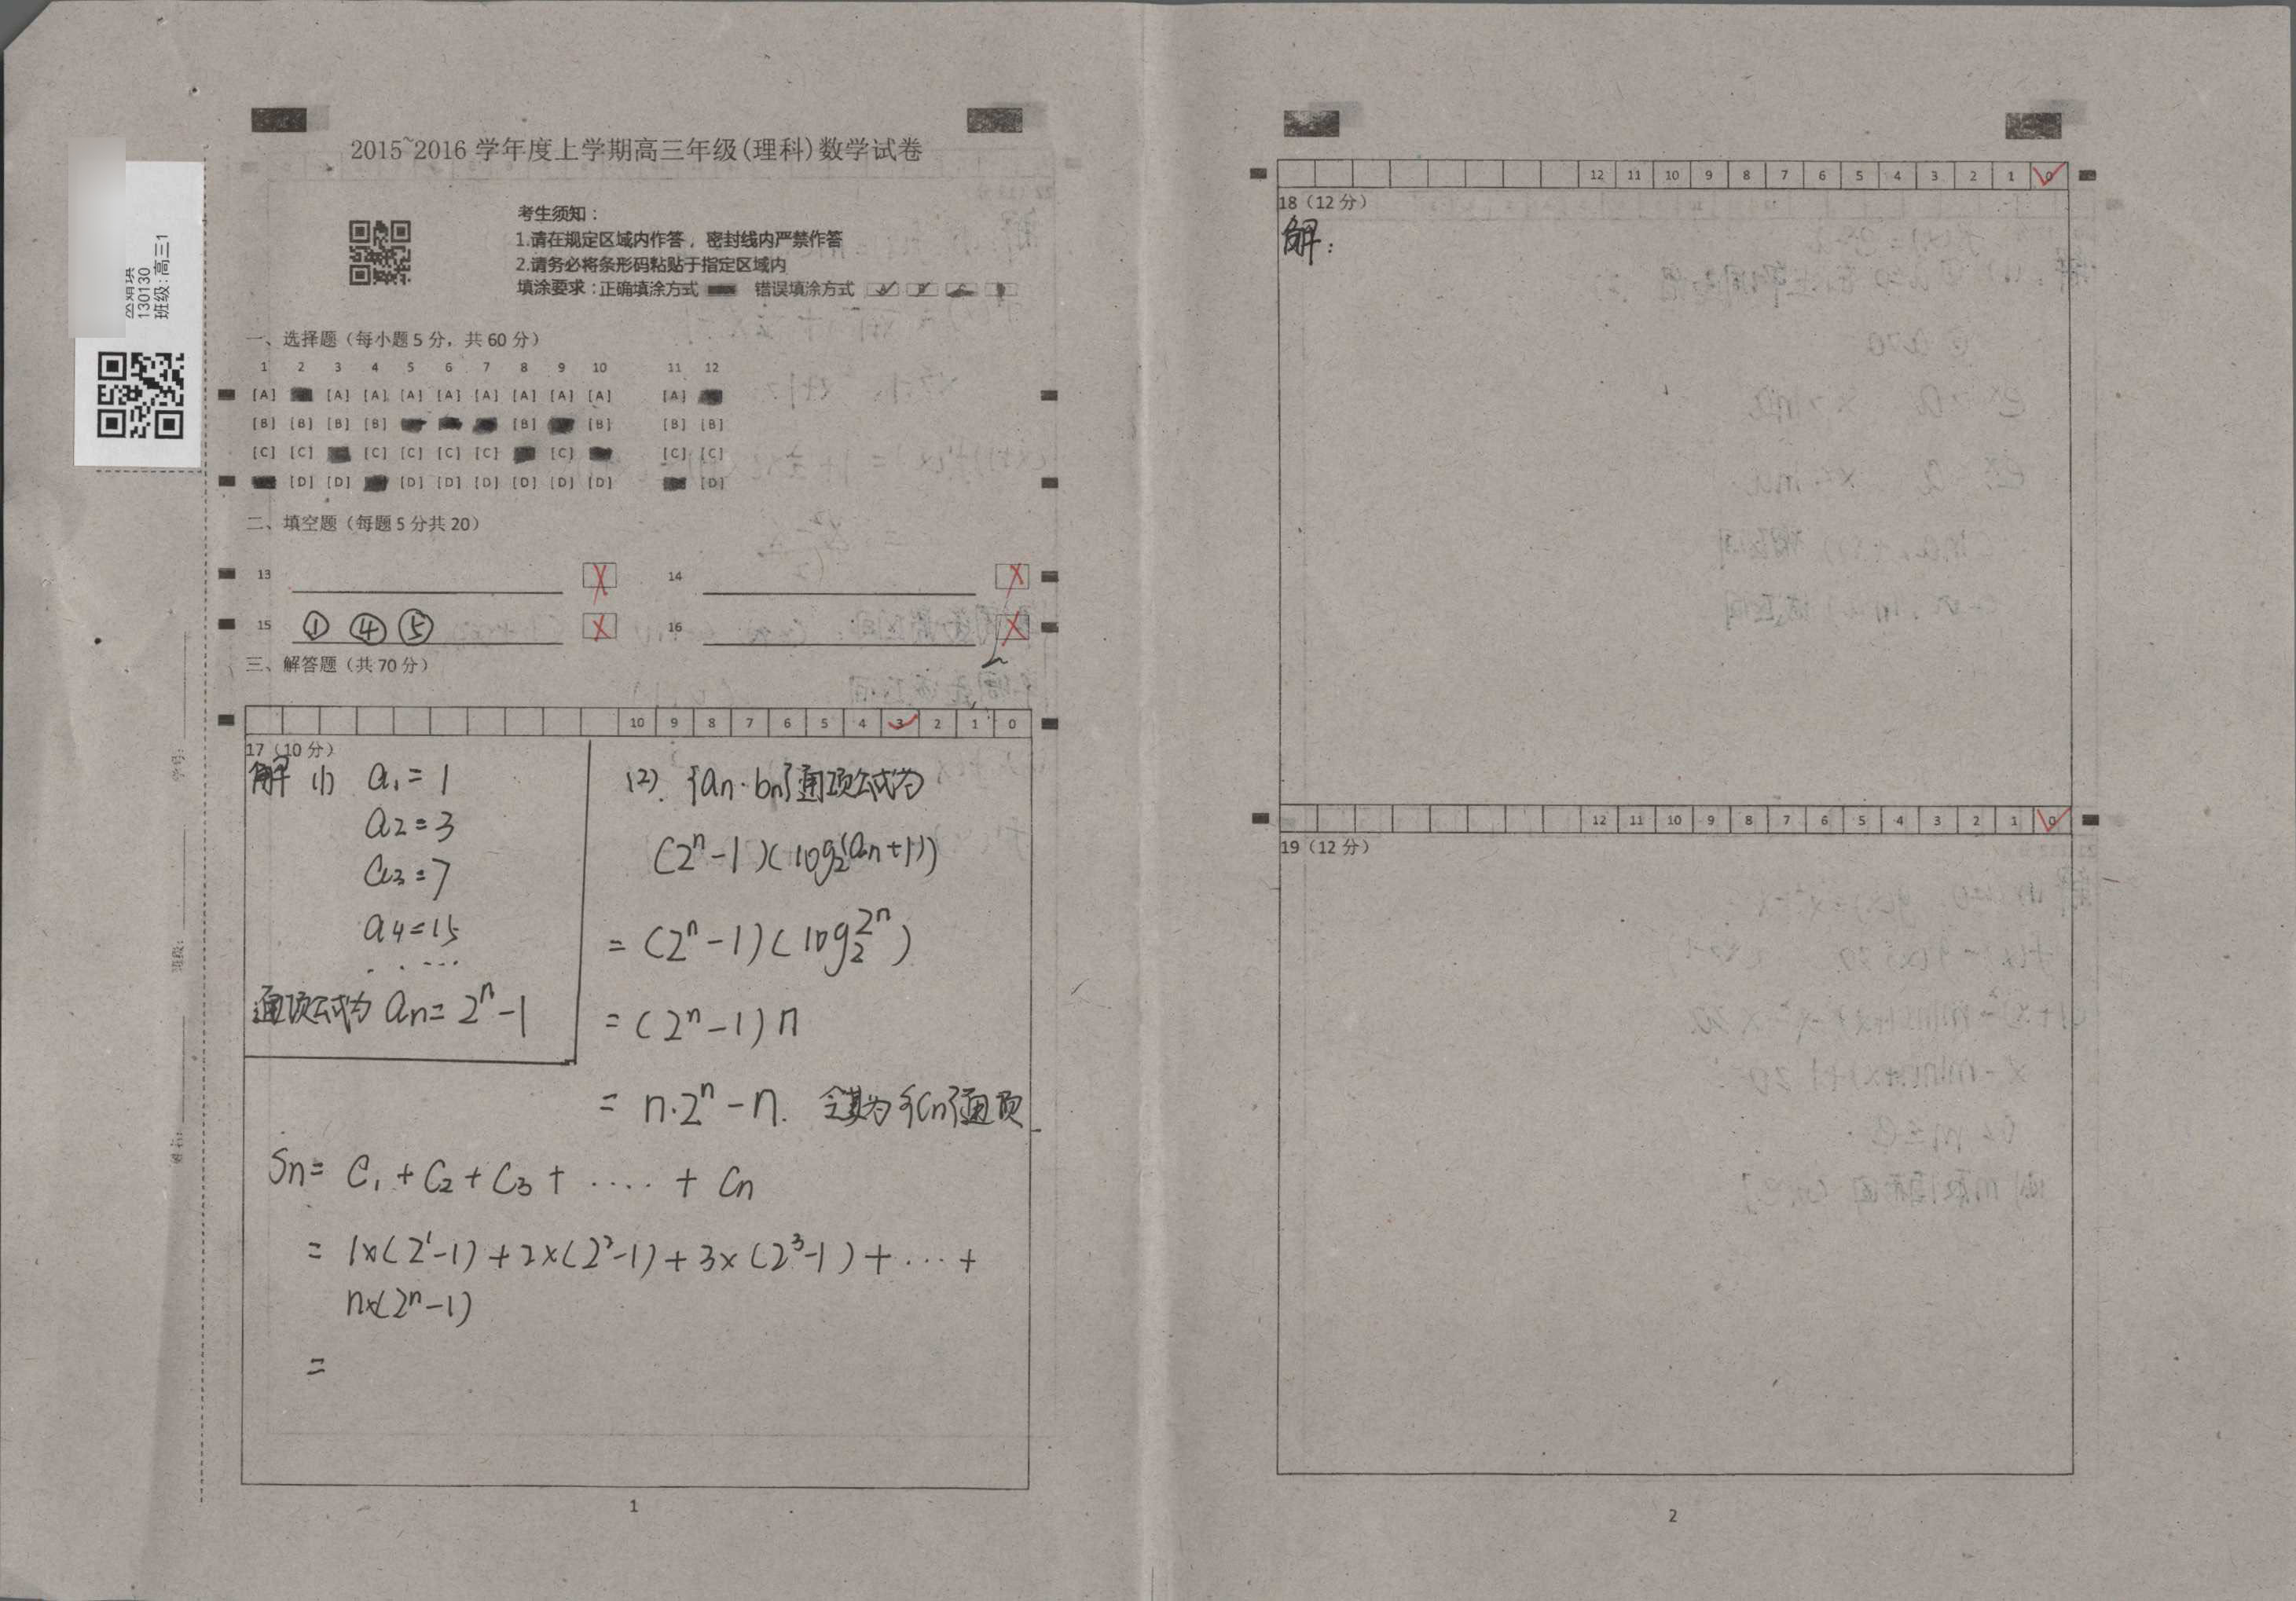 2015~2016 学年度上学期高三年级(理科)数学试卷
考生须知：
1.请在规定区域内作答，密封线内严禁作答
2.请务必将条形码粘贴于指定区域内
填涂要求：正确填涂方式 错误填涂方式
130130
班级:高三1
一、选择题（每小题5分，共60分）
1 2 3 4 5 6 7 8 9 10 11 12
[A] [A] [A] [A] [A] [A] [A] [A] [A] [A]
[B] [B] [B] [B] [B] [B] [B] [B]
[C] [C] [C] [C] [C] [C] [C] [C] [C]
[D] [D] [D] [D] [D] [D] [D] [D] [D]
二、填空题（每题5分共20）
13 14
15 ① ④ ⑤ 16
三、解答题（共70分）
10 9 8 7 6 5 4 3 2 1 0
17（10分）
解 (1) a₁=1
a₂=3
a₃=7
a₄=15
. . ...
通项公式为 aₙ=2ⁿ-1
(2). {aₙ·bₙ}通项公式为
(2ⁿ-1)(log₂(aₙ+1))
=(2ⁿ-1)(log₂2ⁿ)
=(2ⁿ-1)n
= n·2ⁿ-n. 令其为{Cₙ}通项
Sₙ= C₁+C₂+C₃+ ····+ Cₙ
= 1×(2¹-1)+2×(2²-1)+3×(2³-1)+···+
n×(2ⁿ-1)
=
1
学号:
班级:
姓名:
12 11 10 9 8 7 6 5 4 3 2 1 0
18（12分）
解：
12 11 10 9 8 7 6 5 4 3 2 1 0
19（12分）
2